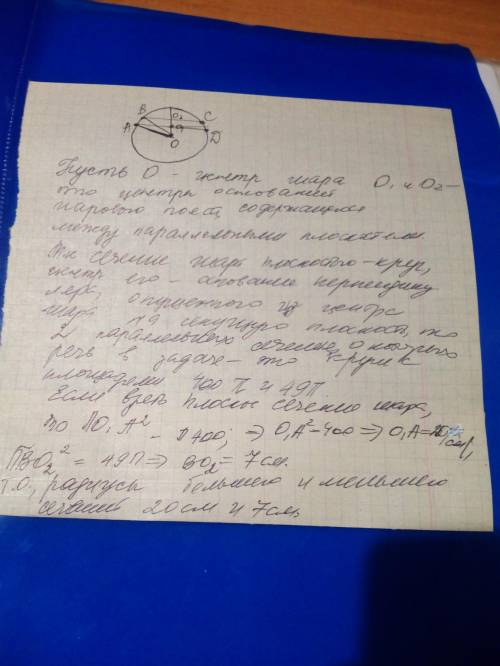 B O₂ C
A O₁ D
O
Пусть O - центр шара O₁ и O₂ -
это центры оснований
шарового пояса содержащегося
между параллельными плоскостями
Тк сечение шара плоскостью - круг,
центр его - основание перпендику
ляра, опущенного из центра
шара на секущую плоскость, то
2 параллельных сечения, о которых
речь в задаче - это круги с
площадями 400 π и 49π.
Если взять площадь сечения шара,
то ПO₁A² = π400; ⇒ O₁A²=400 ⇒ O₁A=20 см,
ПBO₂² = 49π ⇒ BO₂ = 7 см.
Т.О, радиусы большего и меньшего
сечений 20 см и 7 см.